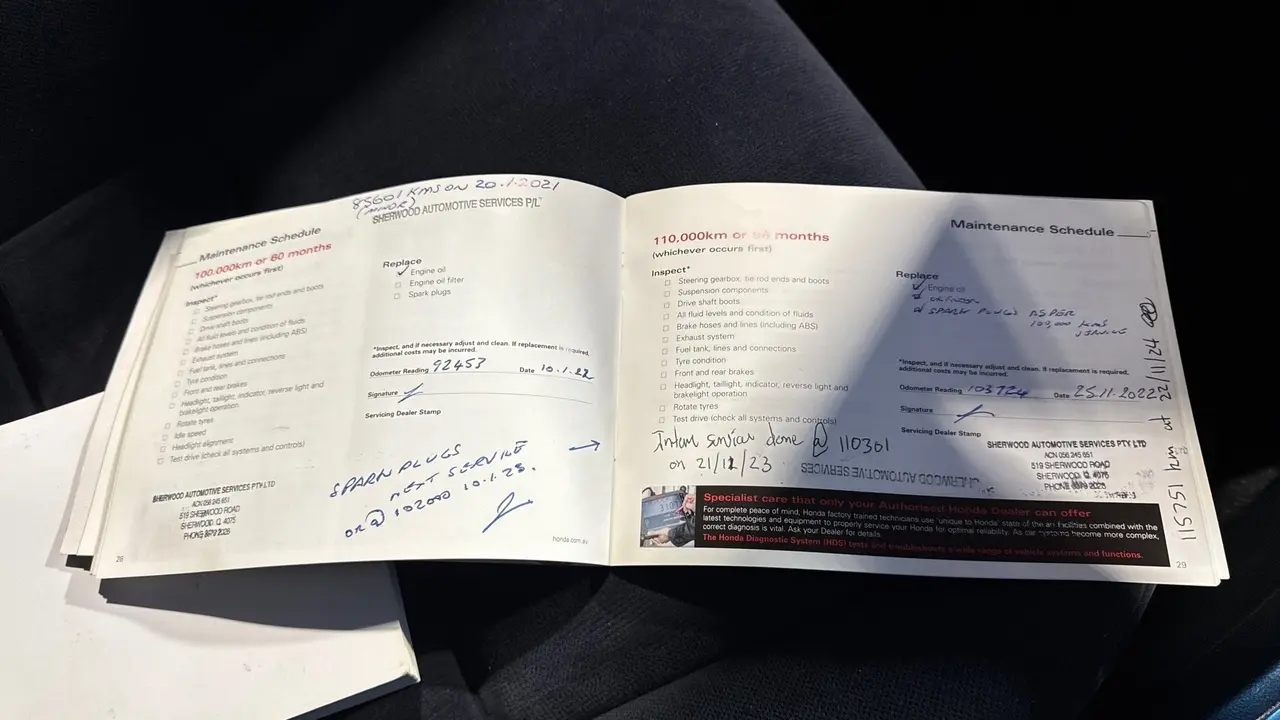 85601 KMS ON 20.1.2021
(MINOR)
SHERWOOD AUTOMOTIVE SERVICES P/L
Maintenance Schedule
100,000km or 60 months
(whichever occurs first)
Inspect*
Steering gearbox, tie rod ends and boots
Suspension components
Drive shaft boots
All fluid levels and condition of fluids
Brake hoses and lines (including ABS)
Exhaust system
Fuel tank, lines and connections
Tyre condition
Front and rear brakes
Headlight, taillight, indicator, reverse light and
brakelight operation
Rotate tyres
Idle speed
Headlight alignment
Test drive (check all systems and controls)
Replace
✓ Engine oil
Engine oil filter
Spark plugs
*Inspect, and if necessary adjust and clean. If replacement is required,
additional costs may be incurred.
Odometer Reading 92453 Date 10.1.22
Signature
Servicing Dealer Stamp
SHERWOOD AUTOMOTIVE SERVICES PTY LTD
ACN 056 245 651
519 SHERWOOD ROAD
SHERWOOD. Q. 4075
PHONE 3379 2025
SPARK PLUGS
NEXT SERVICE
OR @ 10.1.23.
honda.com.au
28
Maintenance Schedule
110,000km or months
(whichever occurs first)
Inspect*
Steering gearbox, tie rod ends and boots
Suspension components
Drive shaft boots
All fluid levels and condition of fluids
Brake hoses and lines (including ABS)
Exhaust system
Fuel tank, lines and connections
Tyre condition
Front and rear brakes
Headlight, taillight, indicator, reverse light and
brakelight operation
Rotate tyres
Test drive (check all systems and controls)
Replace
✓ Engine oil
SPARK PLUGS AS PER
100,000 KMS
SERVICE
*Inspect, and if necessary adjust and clean. If replacement is required,
additional costs may be incurred.
Odometer Reading 103724 Date 25.11.2022
Signature
Servicing Dealer Stamp
Interm services done @ 110301
on 21/12/23
SHERWOOD AUTOMOTIVE SERVICES
SHERWOOD AUTOMOTIVE SERVICES PTY LTD
ACN 056 245 651
519 SHERWOOD ROAD
SHERWOOD. Q. 4075
PHONE 3379 2025
115751 km at 22/11/24
Specialist care that only your Authorised Honda Dealer can offer
For complete peace of mind, Honda factory trained technicians use 'unique to Honda' state of the art facilities combined with the
latest technologies and equipment to properly service your Honda for optimal reliability. As car systems become more complex,
correct diagnosis is vital. Ask your Dealer for details.
The Honda Diagnostic System (HDS) tests and troubleshoots a wide range of vehicle systems and functions.
29